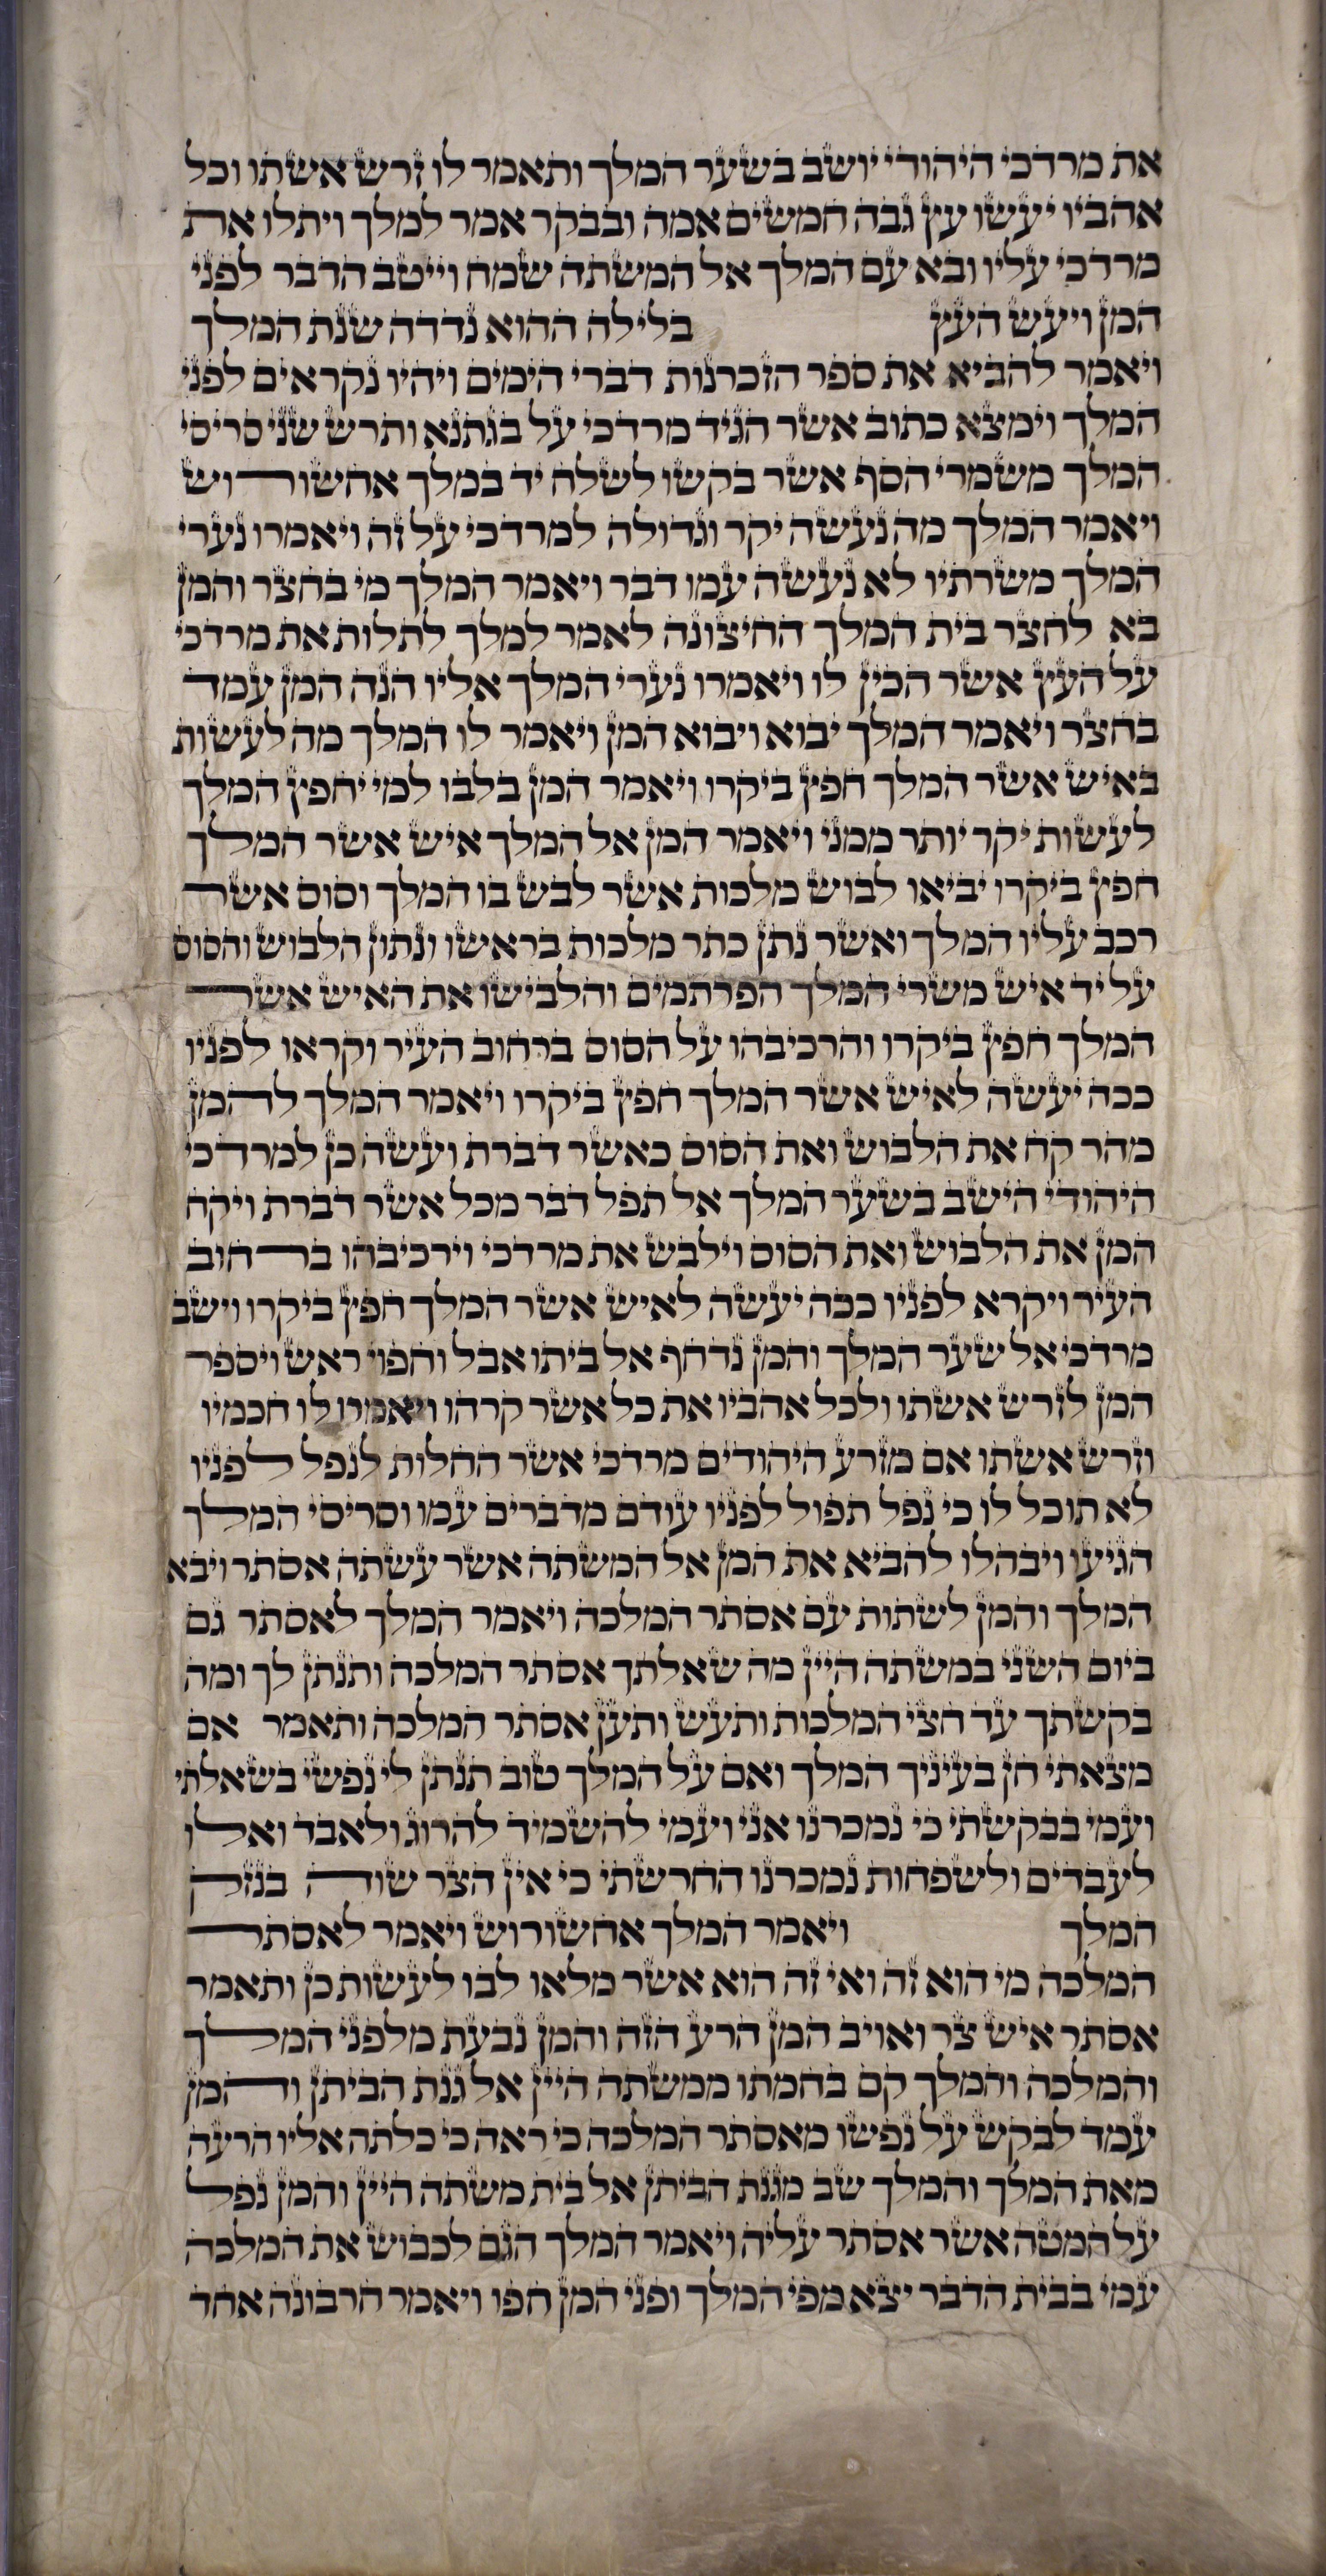 את מרדכי היהודי יושב בשער המלך ותאמר לו זרש אשתו וכל
אהביו יעשו עץ גבה חמשים אמה ובבקר אמר למלך ויתלו את
מרדכי עליו ובא עם המלך אל המשתה שמח וייטב הדבר לפני
המן ויעש העץ בלילה ההוא נדדה שנת המלך
ויאמר להביא את ספר הזכרנות דברי הימים ויהיו נקראים לפני
המלך וימצא כתוב אשר הגיד מרדכי על בגתנא ותרש שני סריסי
המלך משמרי הסף אשר בקשו לשלח יד במלך אחשורוש
ויאמר המלך מה נעשה יקר וגדולה למרדכי על זה ויאמרו נערי
המלך משרתיו לא נעשה עמו דבר ויאמר המלך מי בחצר והמן
בא לחצר בית המלך החיצונה לאמר למלך לתלות את מרדכי
על העץ אשר הכין לו ויאמרו נערי המלך אליו הנה המן עמד
בחצר ויאמר המלך יבוא ויבוא המן ויאמר לו המלך מה לעשות
באיש אשר המלך חפץ ביקרו ויאמר המן בלבו למי יחפץ המלך
לעשות יקר יותר ממני ויאמר המן אל המלך איש אשר המלך
חפץ ביקרו יביאו לבוש מלכות אשר לבש בו המלך וסוס אשר
רכב עליו המלך ואשר נתן כתר מלכות בראשו ונתון הלבוש והסוס
על יד איש משרי המלך הפרתמים והלבישו את האיש אשר
המלך חפץ ביקרו והרכיבהו על הסוס ברחוב העיר וקראו לפניו
ככה יעשה לאיש אשר המלך חפץ ביקרו ויאמר המלך להמן
מהר קח את הלבוש ואת הסוס כאשר דברת ועשה כן למרדכי
היהודי הישב בשער המלך אל תפל דבר מכל אשר דברת ויקח
המן את הלבוש ואת הסוס וילבש את מרדכי וירכיבהו ברחוב
העיר ויקרא לפניו ככה יעשה לאיש אשר המלך חפץ ביקרו וישב
מרדכי אל שער המלך והמן נדחף אל ביתו אבל וחפוי ראש ויספר
המן לזרש אשתו ולכל אהביו את כל אשר קרהו ויאמרו לו חכמיו
וזרש אשתו אם מזרע היהודים מרדכי אשר החלות לנפל לפניו
לא תוכל לו כי נפל תפול לפניו עודם מדברים עמו וסריסי המלך
הגיעו ויבהלו להביא את המן אל המשתה אשר עשתה אסתר ויבא
המלך והמן לשתות עם אסתר המלכה ויאמר המלך לאסתר גם
ביום השני במשתה היין מה שאלתך אסתר המלכה ותנתן לך ומה
בקשתך עד חצי המלכות ותעש ותען אסתר המלכה ותאמר אם
מצאתי חן בעיניך המלך ואם על המלך טוב תנתן לי נפשי בשאלתי
ועמי בבקשתי כי נמכרנו אני ועמי להשמיד להרוג ולאבד ואלו
לעבדים ולשפחות נמכרנו החרשתי כי אין הצר שוה בנזק
המלך ויאמר המלך אחשורוש ויאמר לאסתר
המלכה מי הוא זה ואי זה הוא אשר מלאו לבו לעשות כן ותאמר
אסתר איש צר ואויב המן הרע הזה והמן נבעת מלפני המלך
והמלכה והמלך קם בחמתו ממשתה היין אל גנת הביתן והמן
עמד לבקש על נפשו מאסתר המלכה כי ראה כי כלתה אליו הרעה
מאת המלך והמלך שב מגנת הביתן אל בית משתה היין והמן נפל
על המטה אשר אסתר עליה ויאמר המלך הגם לכבוש את המלכה
עמי בבית הדבר יצא מפי המלך ופני המן חפו ויאמר חרבונה אחד